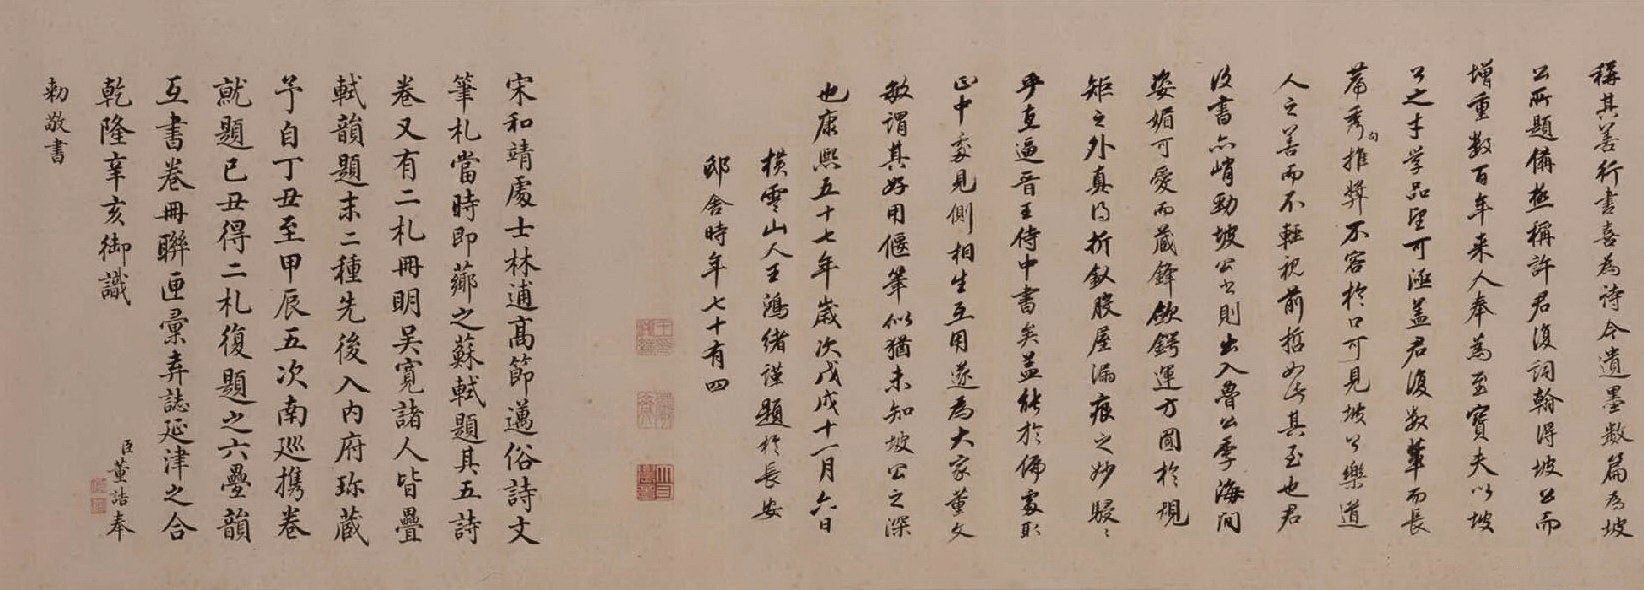 稱其善行書喜為詩今遺墨數篇為坡
公所題備極稱許君復詞翰得坡公而
增重數百年来人奉為至寶夫以坡
公之才學品望可涵蓋君復數輩而長
篇秀句推奬不容於口可見坡公樂道
人之善而不輕視前哲如此其至也君
復書亦峭勁坡公書則出入魯公季海間
姿媚可愛而藏鋒歛鍔運方圓於規
矩之外真得折釵股屋漏痕之妙駸〻
乎直逼晉王侍中書矣蓋能於偏處取
正中處見側相生互用遂為大家董文
敏謂其好用偃筆似猶未知坡公之深
也康熙五十七年歲次戊戌十一月六日
橫雲山人王鴻緒謹題於長安
邸舍時年七十有四
宋和靖處士林逋高節邁俗詩文
筆札當時即薌之蘇軾題其五詩
卷又有二札冊明吳寬諸人皆疊
軾韻題末二種先後入內府珎藏
予自丁丑至甲辰五次南廵攜卷
就題已丑得二札復題之六疊韻
互書卷冊聯匣彙弆誌延津之合
乾隆辛亥御識
臣董誥奉
勅敬書